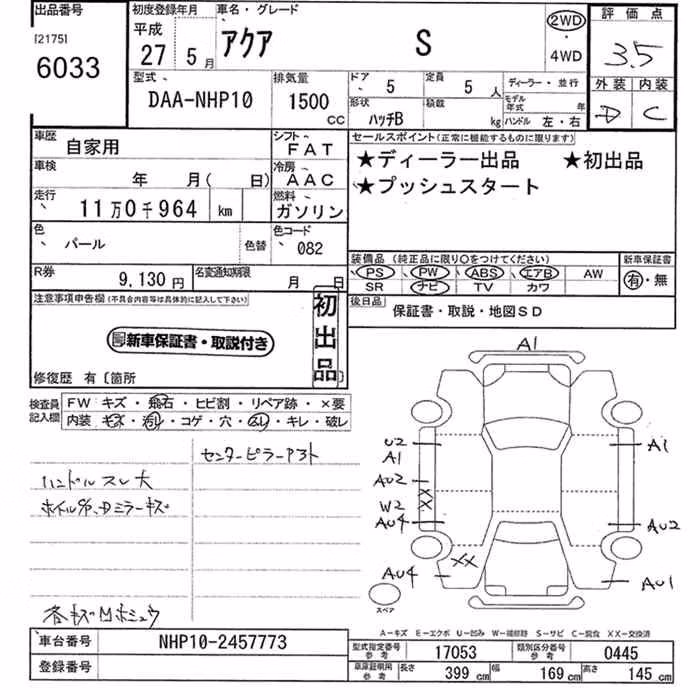 出品番号
[2175]
6033
初度登録年月
平成
27 5月
車名・グレード
アクア S
2WD
・
4WD
評価点
3.5
外装 内装
D C
型式
DAA-NHP10
排気量
1500
CC
ドア
5
定員
5人
形状
ハッチB
積載
kg
ディーラー・並行
モデル年式 年
ハンドル 左・右
車歴
自家用
シフト
FAT
車検
年 月( 日)
冷房
AAC
走行
11万0千964 km
燃料
ガソリン
色
パール
色替
色コード
082
R券
9,130円
名変通知期限
月 日
セールスポイント(正常に機能するものに限ります)
★ディーラー出品 ★初出品
★プッシュスタート
装備品 (純正品に限り〇をつけてください)
新車保証書
PS PW ABS エアB AW
SR ナビ TV カワ
有・無
後日品
保証書・取説・地図SD
注意事項申告欄(不具合内容等は具体的に記入して下さい)
新車保証書・取説付き
初出品
修復歴 有〔箇所
検査員記入欄
FW キズ・飛石・ヒビ割・リペア跡・×要
内装 キズ・汚れ・コゲ・穴・スレ・キレ・破レ
センターピラーアスト
ハンドルスレ大
ホイルキズ、Dミラーキズ
各キズ凹ホシュウ
A1
U2
A1
A1
AU2
XX
W2
AU4
AU2
AU4
XX
AU1
スペア
A-キズ E-エクボ U-凹み W-補修跡 S-サビ C-腐食 XX-交換済
車台番号
NHP10-2457773
登録番号
型式指定番号
参考
17053
類別区分番号
参考
0445
車庫証明用
参考
長さ 399cm 幅 169cm 高さ 145cm